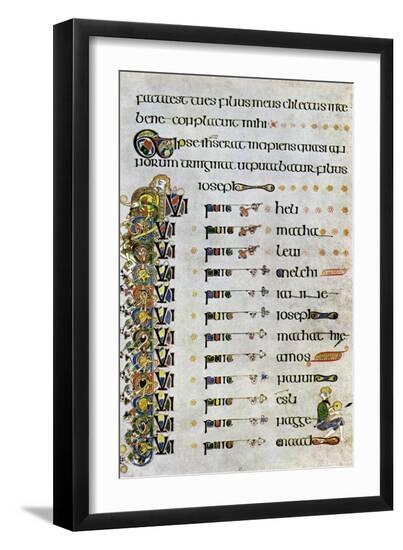 facta est tu es filius meus dilectus in te
bene conplacuit mihi
Et ipse ihs erat incipiens quasi an
norum triginta ut putabatur filius
ioseph
QUI fuit heli
QUI fuit matha
QUI fuit levi
QUI fuit melchi
QUI fuit
QUI fuit ioseph
QUI fuit mathathie
QUI fuit amos
QUI fuit naum
QUI fuit esli
QUI fuit nagge
QUI fuit